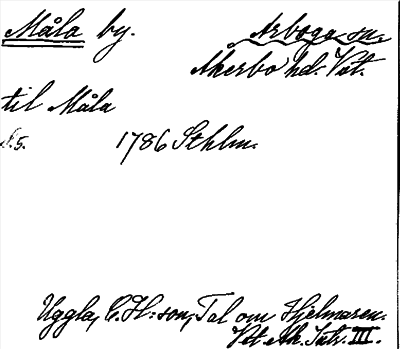 Måla by. Arboga sn.
Åkerbo hd. Vstm.
til Måla
s. 5. 1786 Sthlm.
Uggla, C. H:son, Tal om Hjelmaren.
Vet. Ak. Intr. III.